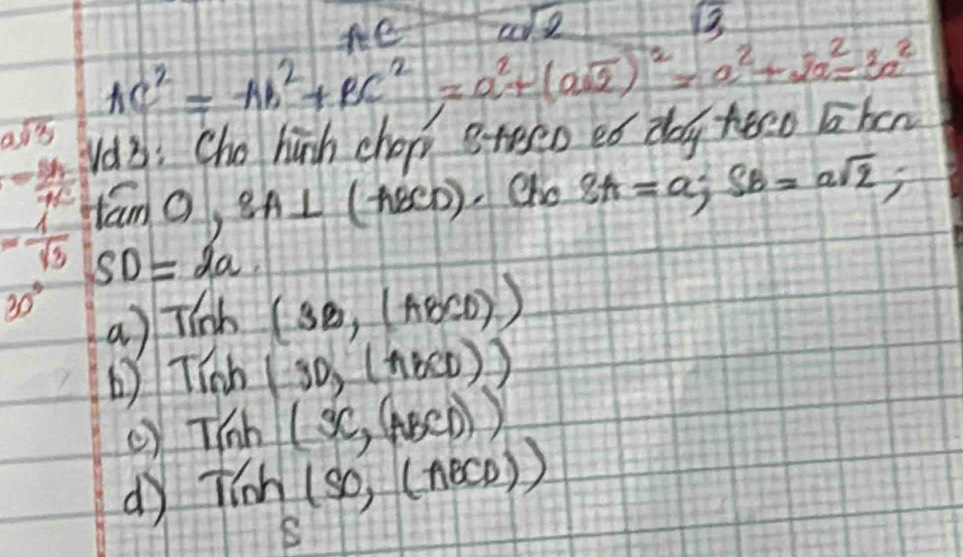 AC a√2 √3
AC² = AB² + BC² = a² + (a√2)² = a² + 2a² = 3a²
a√3
Vd3: Cho hình chóp S.ABCD có đáy ABCD là hcn
= SA/AC
tâm O, SA ⊥ (ABCD). Cho SA = a; SB = a√2;
= 1/√3
SD = 2a.
30°
a) Tính (SB, (ABCD))
b) Tính (SD, (ABCD))
c) Tính (SC, (ABCD))
d) Tính (SO, (ABCD))
S